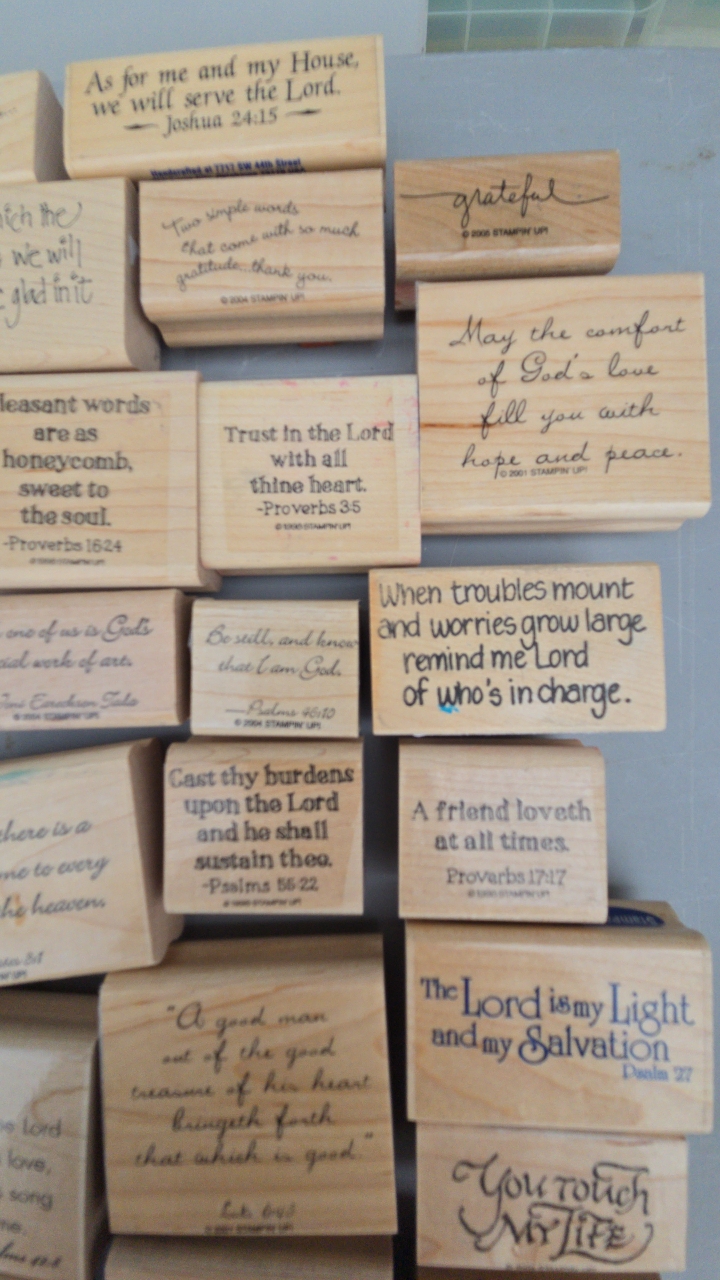 As for me and my House,
we will serve the Lord.
Joshua 24:15
Handcrafted at 7251 SW 44th Street
grateful
© 2005 STAMPIN' UP!
the
we will
glad in it
Two simple words
that come with so much
gratitude...thank you.
© 2004 STAMPIN' UP!
May the comfort
of God's love
fill you with
hope and peace.
© 2001 STAMPIN' UP!
leasant words
are as
honeycomb,
sweet to
the soul.
-Proverbs 16:24
Trust in the Lord
with all
thine heart.
-Proverbs 3:5
STAMPIN' UP!
one of us is God's
cial work of art.
Joni Eareckson Tada
© 2004 STAMPIN' UP!
Be still, and know
that I am God.
—Psalms 46:10
© 2004 STAMPIN' UP!
When troubles mount
and worries grow large
remind me Lord
of who's in charge.
here is a
me to every
he heaven.
3:1
Cast thy burdens
upon the Lord
and he shall
sustain thee.
-Psalms 55:22
A friend loveth
at all times.
Proverbs 17:17
"A good man
out of the good
treasure of his heart
bringeth forth
that which is good."
Luke 6:45
The Lord is my Light
and my Salvation
Psalm 27
Lord
love,
song
me.
You Touch
My Life